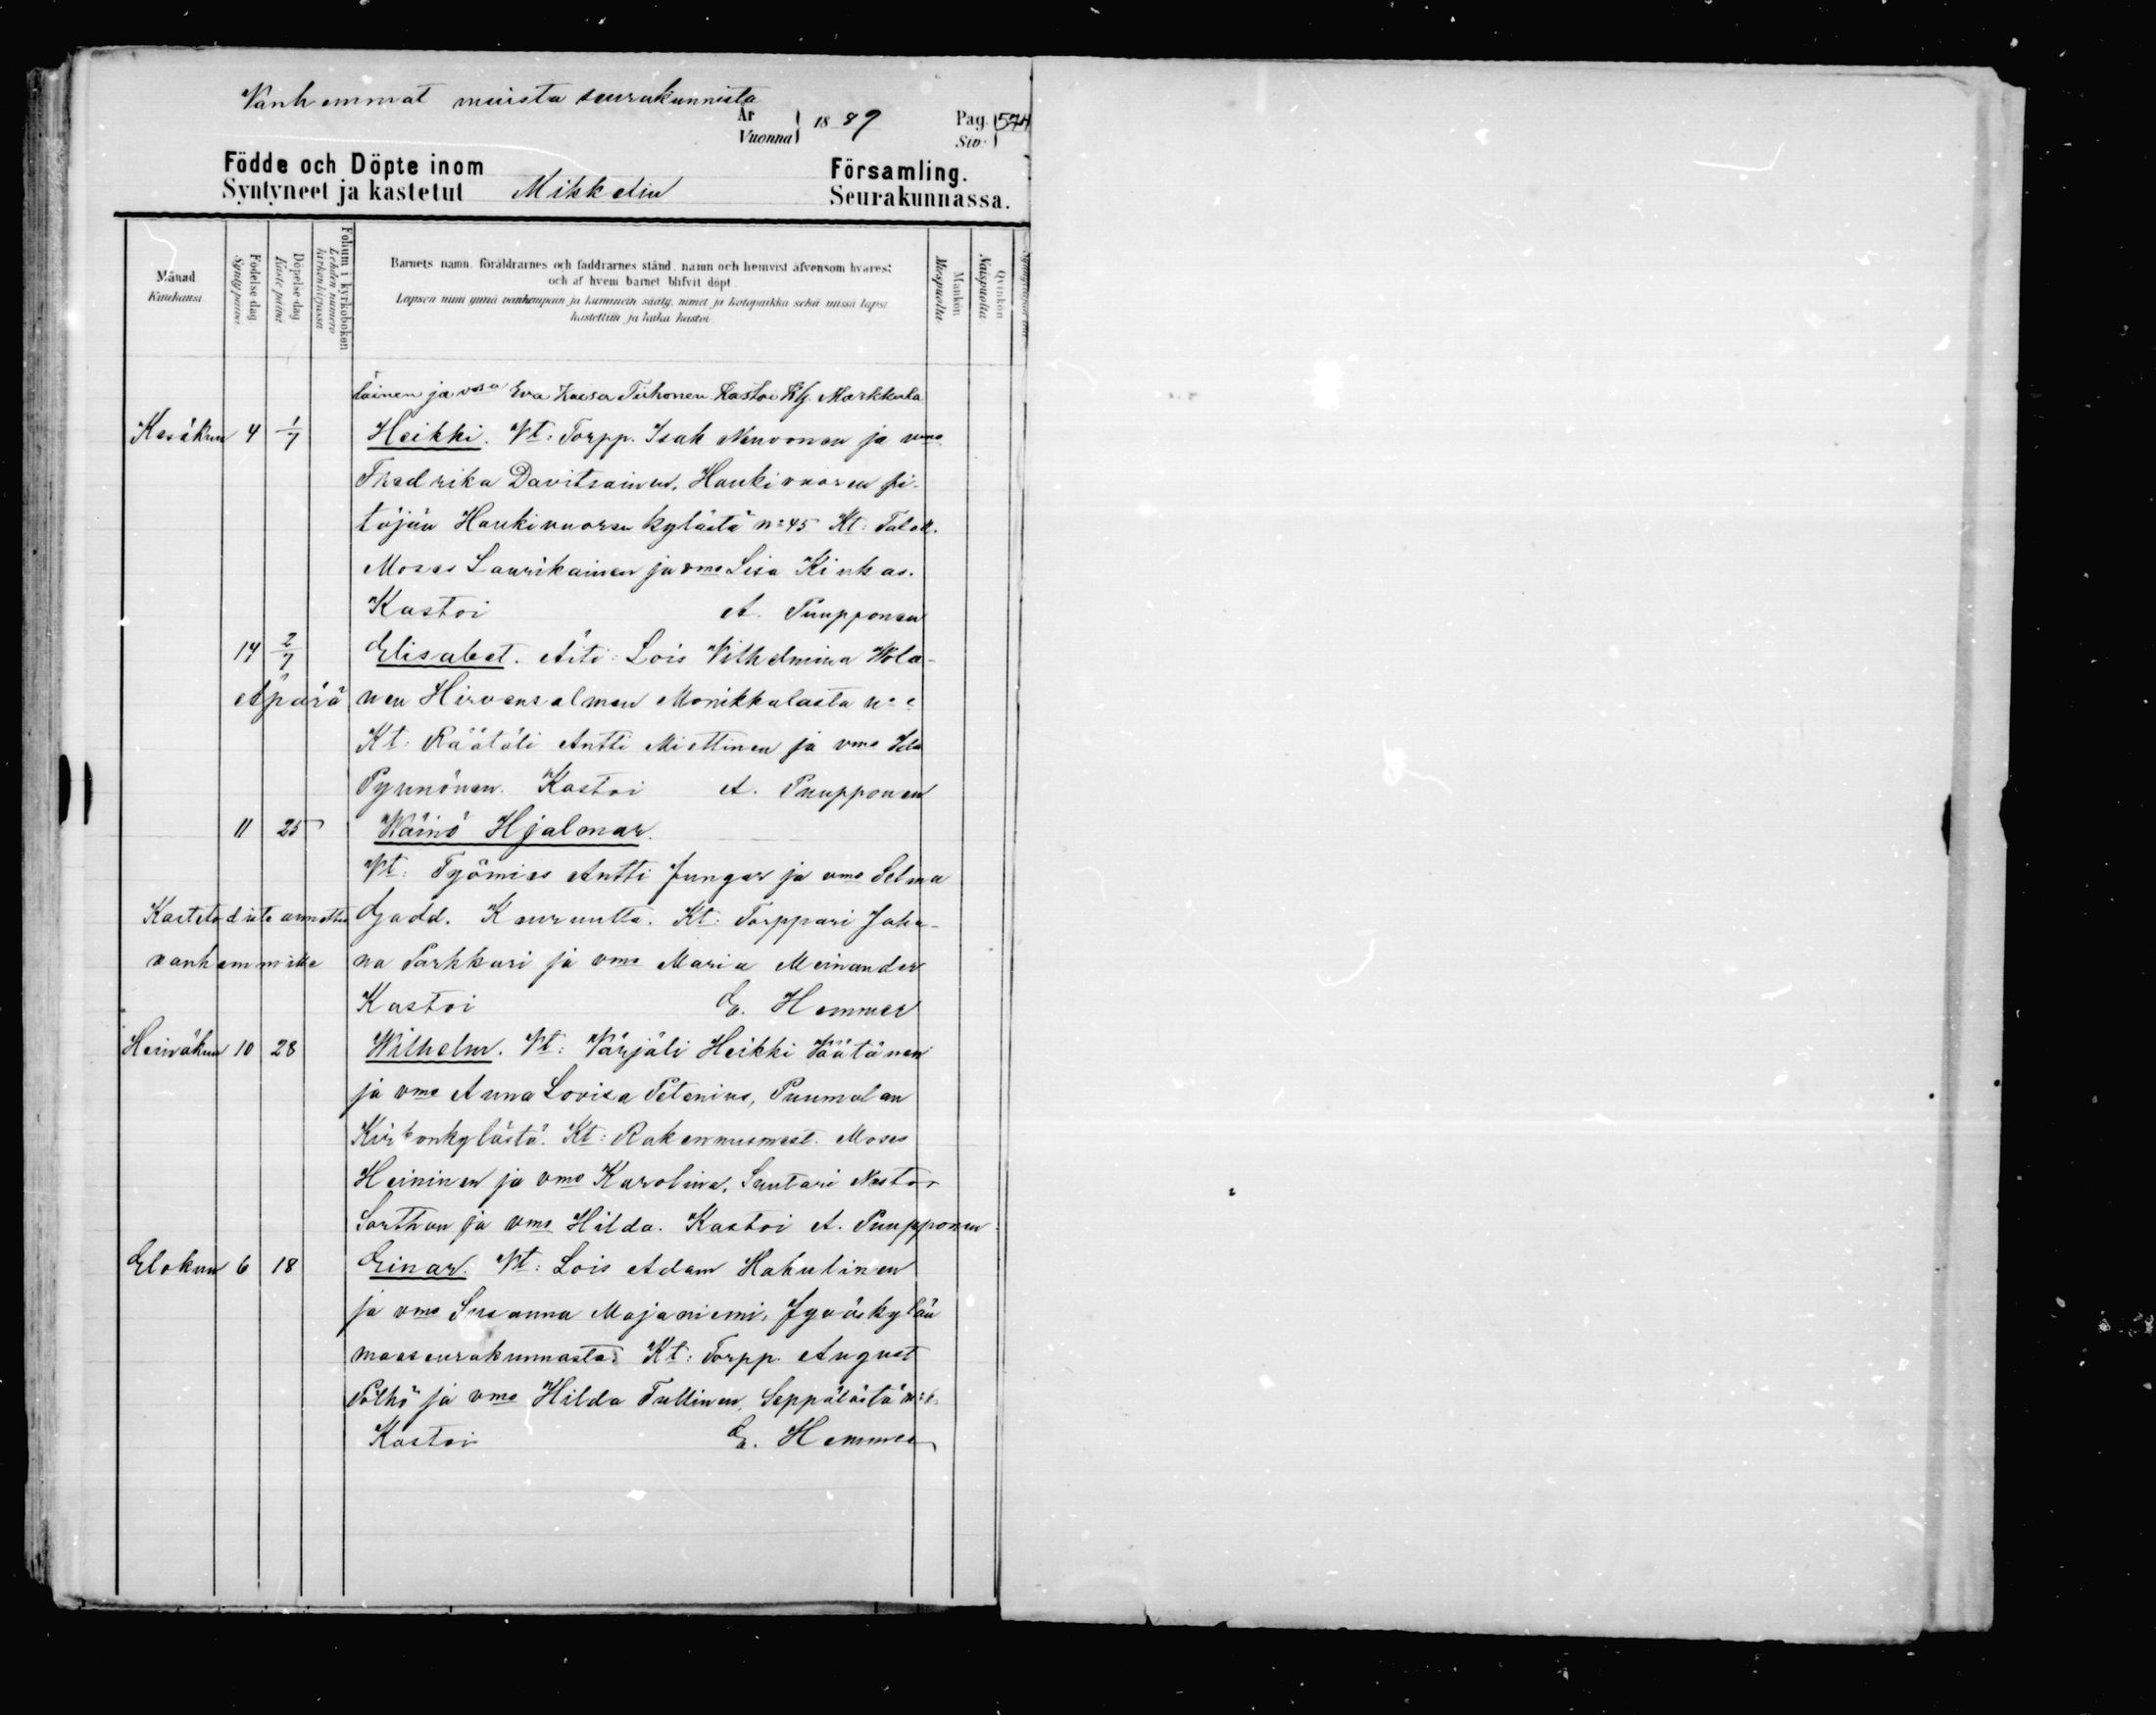 Vanhemmat muista seurakunnista
År
Vuonna
1889
Pag. 574
Siv.
Födde och Döpte inom
Församling.
Syntyneet ja kastetut Mikkelin Seurakunnassa.
Månad
Kuukausi
Födelse dag
Syntypäivä
Döpelse dag
Kaste päivä
Folium i kyrkoboken
Lehden numero kirkonkirjassa
Barnets namn, föräldrarnes och faddrarnes stånd, namn och hemvist äfvensom hvarest
och af hvem barnet blifvit döpt.
Lapsen nimi ynnä vanhempain ja kummein sääty, nimet ja kotopaikka sekä missä lapsi
kastettiin ja kuka kastoi
Mankön
Miespuolia
Qvinkön
Naispuolia
läinen ja vmsa Eva Kaisa Tiihonen Kastoi Markkula
Kesäkuu 4 1/7 Heikki. Vt: Torpp. Isak Neuvonen ja vmo
Fredrika Davitsainen, Haukivuoren pi-
täjän Haukivuoren kylästä n:45 Kt: Talok.
Moses Laurikainen ja vmo Lisa Kinkas.
Kastoi A. Puupponen
14 2/7 Elisabet. Äiti: Lois Vilhelmina Wola-
Äpärä nen Hirvensalmen Monikkalasta n:
Kt: Räätäli Antti Miettinen ja vmo Ida
Pynnönen. Kastoi A. Puupponen
11 25 Wäinö Hjalmar.
Vt: Työmies Antti Jungar ja vmo Selma
Kastetodiste annettu Gadd. Keuruulta. Kt: Torppari Joha-
vanhemmille na Parkkari ja vmo Maria Meinander
Kastoi E. Hemmer
Heinäkuu 10 28 Wilhelm. Vt: Värjäli Heikki Väätänen
ja vmo Anna Lovisa Petenius, Puumalan
Kirkonkylästä. Kt: Rakennusmest. Moses
Heininen ja vmo Karolina, Suutari Nestor
Sorthan ja vmo Hilda. Kastoi A. Puupponen
Elokuu 6 18 Einar. Vt: Lois Adam Hakulinen
ja vmo Susanna Majaniemi, Jyväskylän
maaseurakunnasta. Kt: Torpp. August
Pölhö ja vmo Hilda Tullinen, Seppälästä n:6.
Kastoi E. Hemmer